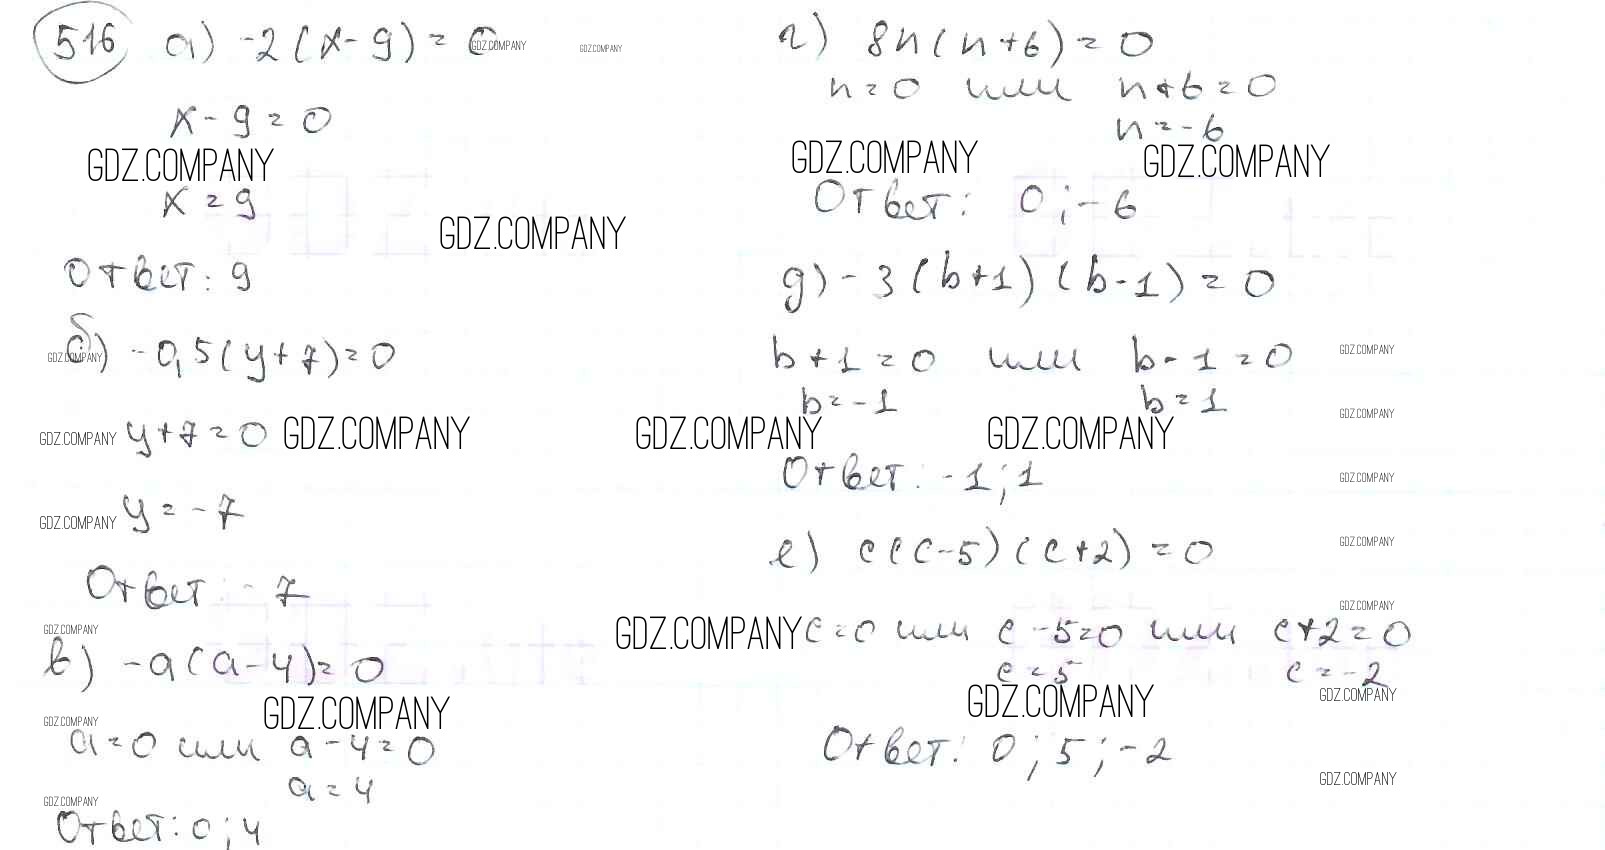 516 а) -2(x-9)=0
GDZ.COMPANY GDZ.COMPANY
x-9=0
GDZ.COMPANY
x=9
GDZ.COMPANY
Ответ: 9
б) -0,5(y+7)=0
GDZ.COMPANY
y+7=0
GDZ.COMPANY GDZ.COMPANY
y=-7
GDZ.COMPANY
Ответ: -7
GDZ.COMPANY
в) -a(a-4)=0
GDZ.COMPANY
GDZ.COMPANY
a=0 или a-4=0
a=4
GDZ.COMPANY
Ответ: 0; 4
г) 8n(n+6)=0
n=0 или n+6=0
n=-6
GDZ.COMPANY GDZ.COMPANY
Ответ: 0; -6
д) -3(b+1)(b-1)=0
b+1=0 или b-1=0
GDZ.COMPANY
b=-1 b=1
GDZ.COMPANY
GDZ.COMPANY GDZ.COMPANY
Ответ: -1; 1
GDZ.COMPANY
е) c(c-5)(c+2)=0
GDZ.COMPANY
GDZ.COMPANY
GDZ.COMPANY
c=0 или c-5=0 или c+2=0
c=5 c=-2
GDZ.COMPANY GDZ.COMPANY
Ответ: 0; 5; -2
GDZ.COMPANY